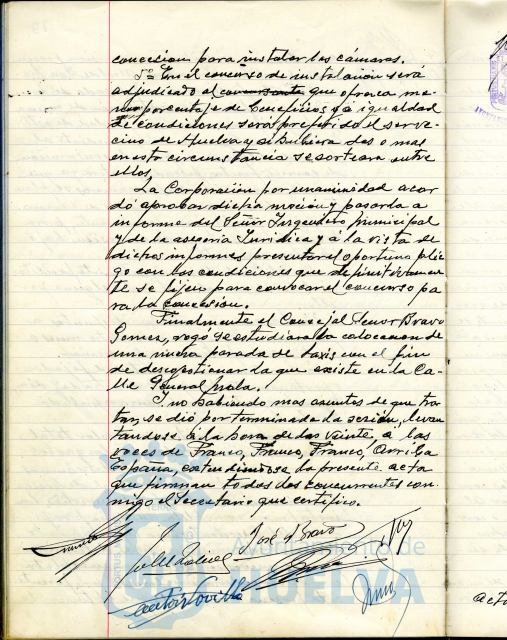 concesion para instalar las cámaras.
5º En el concurso de instalación será
adjudicado al concursante que ofrezca me-
nor porcentaje de beneficios y á igualdad
de condiciones será preferido el ser ve-
cino de Huelva y si hubiera dos o mas
en esta circunstancia se sorteara entre
ellos.
La Corporación por unanimidad acor
dó aprobar dicha moción y pasarla a
informe del Señor Ingeniero municipal
y de la asesoria Juridica y á la vista de
dichos informes presentar el oportuno plie
go con las condiciones que definitivamen
te se fijen para convocar el concurso pa
ra la concesion.
Finalmente el Concejal Señor Bravo
Gomez, rogó se estudiara la colocacion de
una nueva parada de taxis con el fin
de descongestionar la que existe en la Ca-
lle General Mola.
Y no habiendo mas asuntos de que tra
tar, se dió por terminada la sesión, levan
tandose á la hora de las veinte, a las
voces de Franco, Franco, Franco, Arriba
España, extendiendose la presente acta
que firman todos los concurrentes con-
migo el Secretario que certifico.
José Bravo
Ayuntamiento de
HUELVA